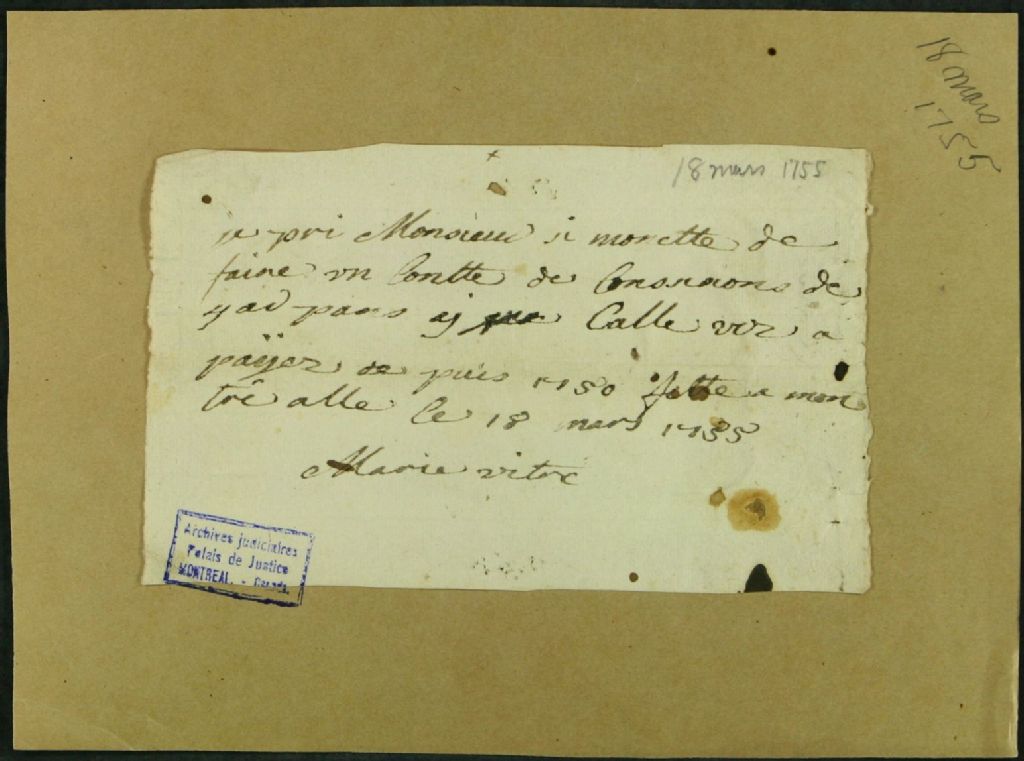 18 mars
1755
18 mars 1755
je pri Monsieur si monette de
faire un Contte de de
y ad pans Calle voz a
païjez de puis 1750 fette a mon
trê alle Ce 18 mars 1755
Marie vitre
Archives judiciaires
Palais de Justice
MONTREAL. - Canada.